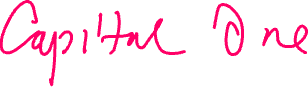 Capital One